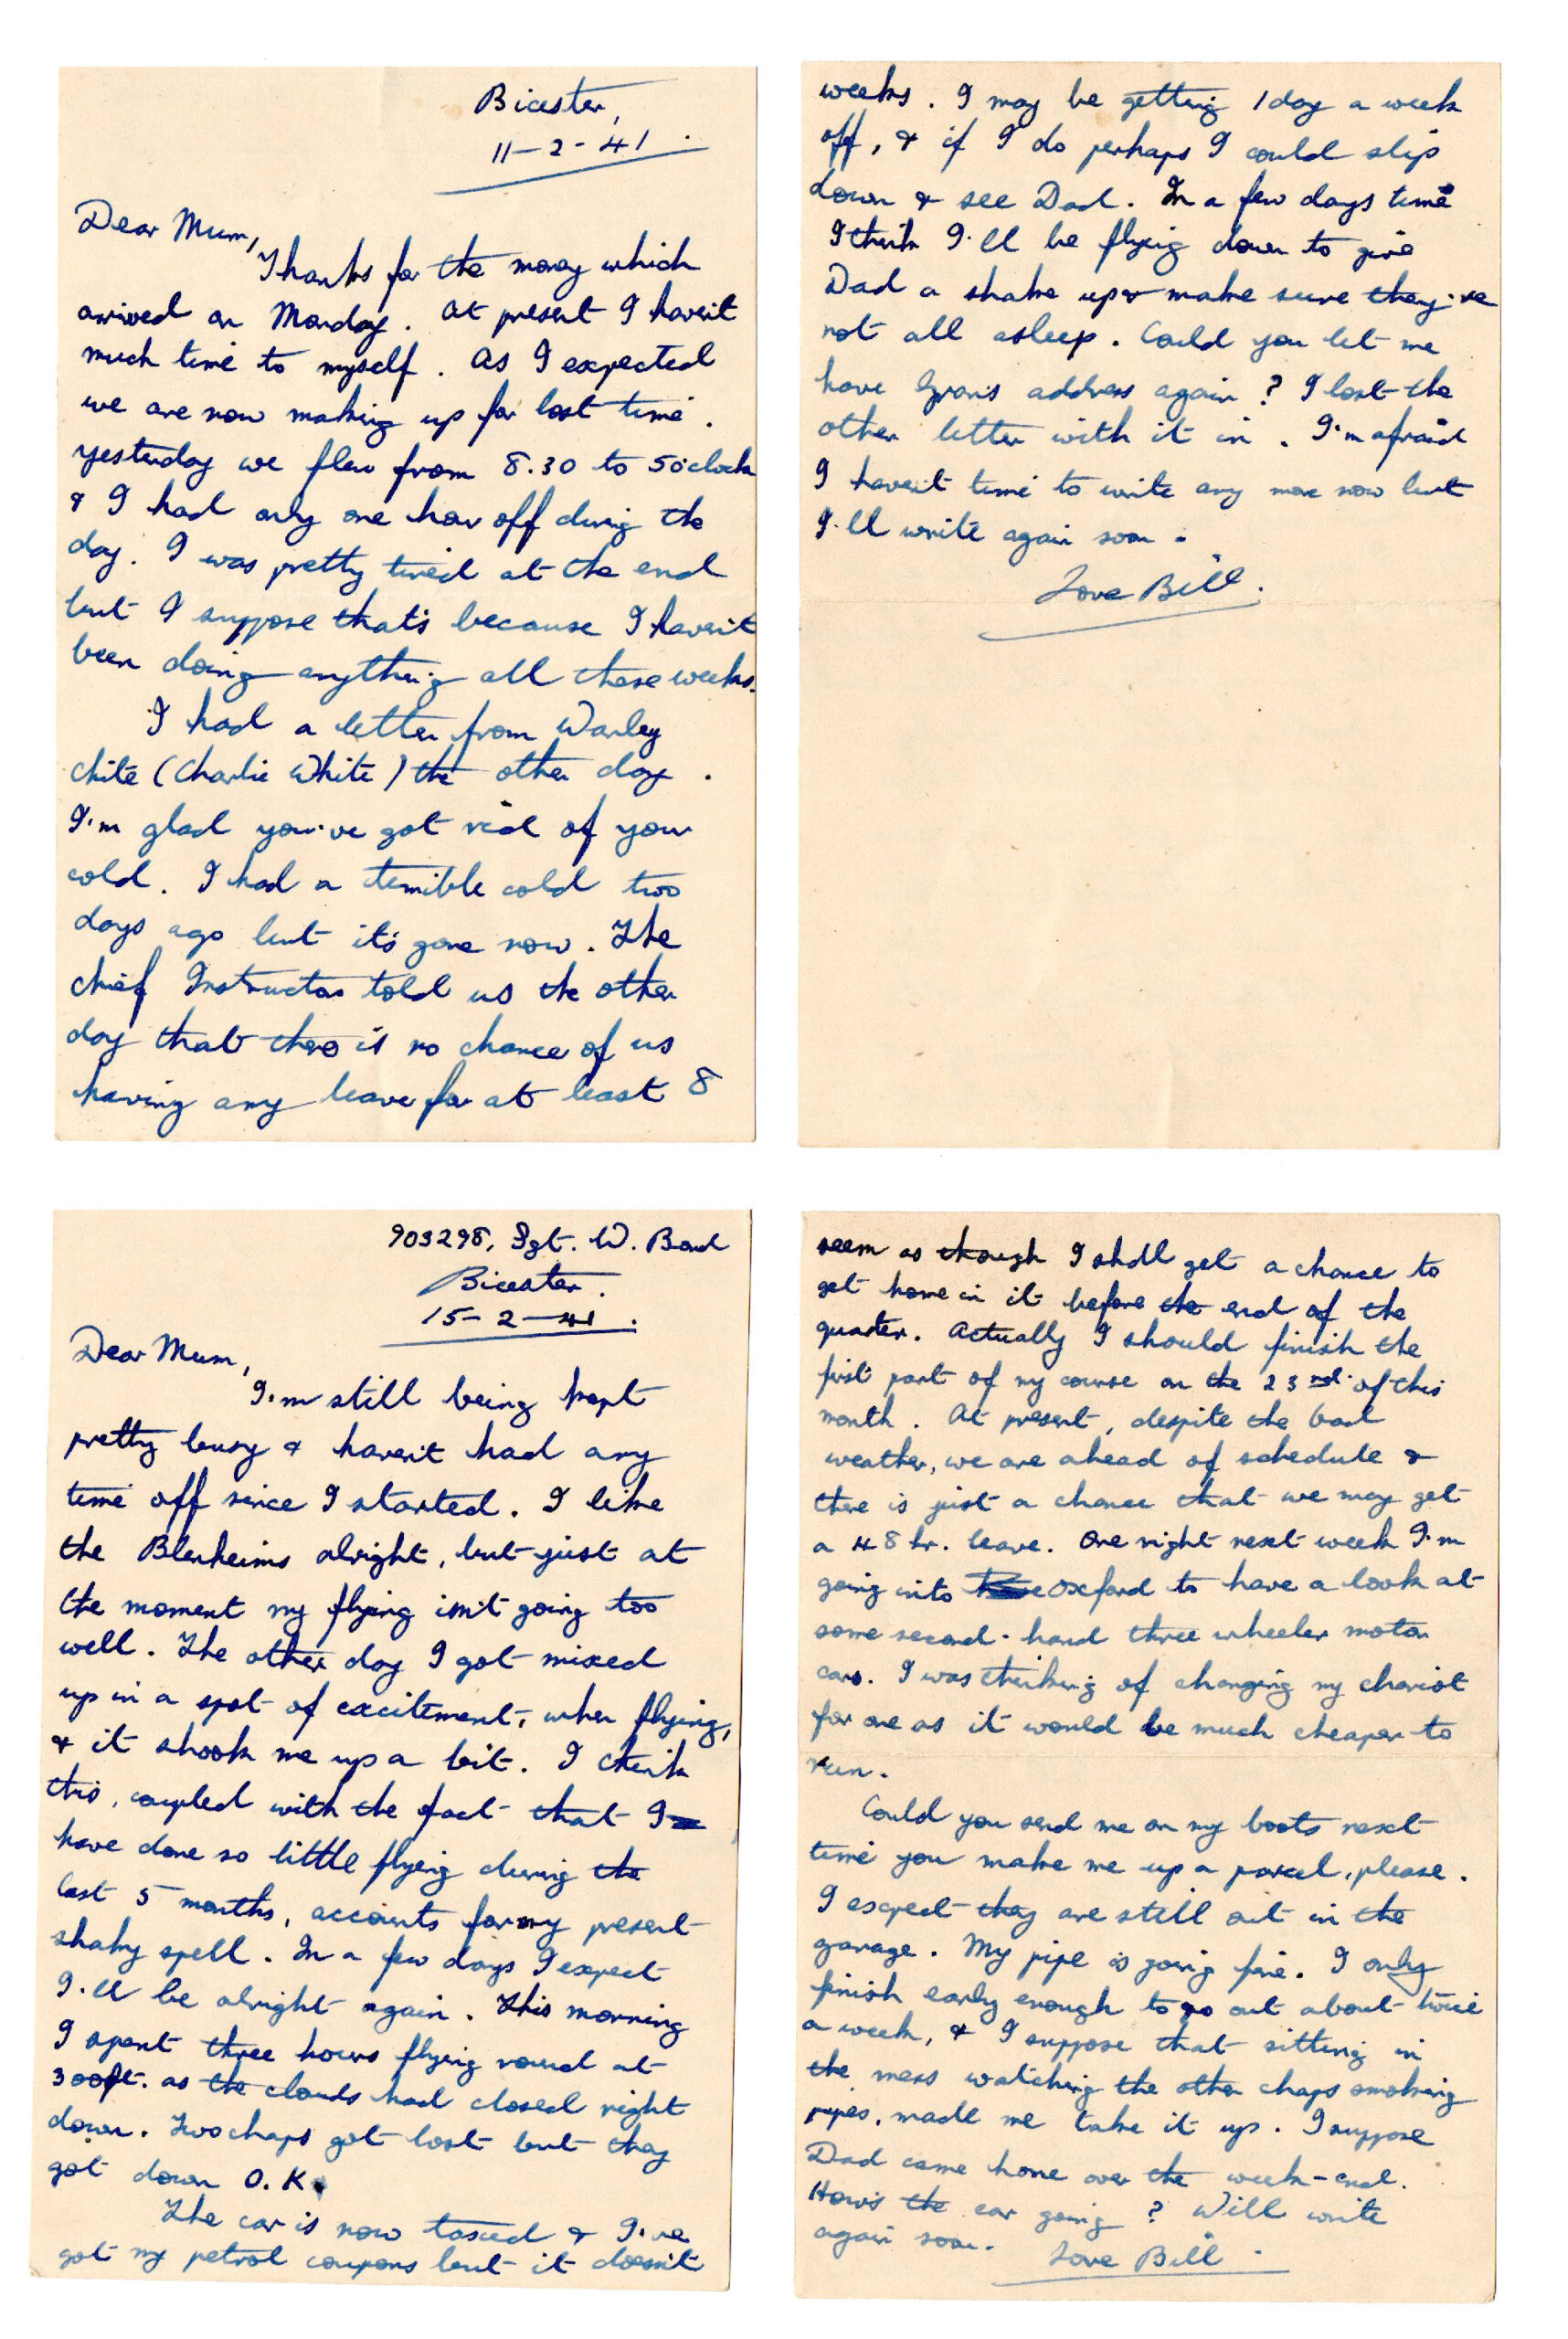 Bicester,
11-2-41.
Dear Mum,
Thanks for the money which
arrived on Monday. At present I haven't
much time to myself. As I expected
we are now making up for lost time.
Yesterday we flew from 8.30 to 5o'clock
& I had only one hour off during the
day. I was pretty tired at the end
but I suppose that's because I haven't
been doing anything all these weeks.
I had a letter from Warley
Chite (Charlie White) the other day.
I'm glad you've got rid of your
cold. I had a terrible cold two
days ago but it's gone now. The
Chief Instructor told us the other
day that there is no chance of us
having any leave for at least 8
weeks. I may be getting 1 day a week
off, & if I do perhaps I could slip
down & see Dad. In a few days time
I think I'll be flying down to give
Dad a shake up & make sure they're
not all asleep. Could you let me
have Gran's address again? I lost the
other letter with it in. I'm afraid
I haven't time to write any more now but
I'll write again soon.
Love Bill.
903298, Sgt. W. Bond
Bicester.
15-2-41.
Dear Mum,
I'm still being kept
pretty busy & haven't had any
time off since I started. I like
the Blenheims alright, but just at
the moment my flying isn't going too
well. The other day I got mixed
up in a spot of excitement, when flying,
& it shook me up a bit. I think
this, coupled with the fact that I
have done so little flying during the
last 5 months, accounts for my present
shaky spell. In a few days I expect
I'll be alright again. This morning
I spent three hours flying round at
300ft. as the clouds had closed right
down. Two chaps got lost but they
got down O.K.
The car is now taxed & I've
got my petrol coupons but it doesn't
seem as though I shall get a chance to
get home in it before the end of the
quarter. Actually I should finish the
first part of my course on the 23rd. of this
month. At present, despite the bad
weather, we are ahead of schedule &
there is just a chance that we may get
a 48 hr. leave. One night next week I'm
going into Oxford to have a look at
some second-hand three wheeler motor
cars. I was thinking of changing my chariot
for one as it would be much cheaper to
run.
Could you send me on my boots next
time you make me up a parcel, please.
I expect they are still out in the
garage. My pipe is going fine. I only
finish early enough to go out about twice
a week, & I suppose that sitting in
the mess watching the other chaps smoking
pipes, made me take it up. I suppose
Dad came home over the week-end.
How's the car going? Will write
again soon.
Love Bill.